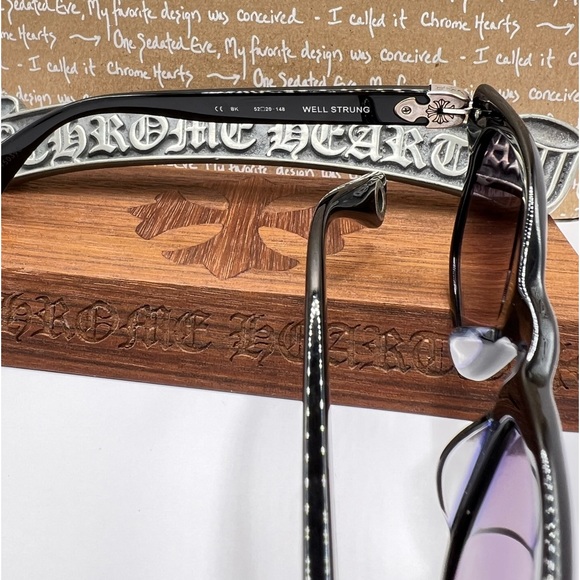 My favorite design was conceived - I called it Chrome Hearts
One Sedated Eve, My favorite design was conceived
- I called it Chrome Hearts → One Sedated Eve, My favorite design was conceived - I called it
Chrome Hearts → - I called it Chrome Hearts
One Sedated
CE BK 52□20-148 WELL STRUNG
CHROME HEART
Eve, My favorite design was conceived
CHROME HEART